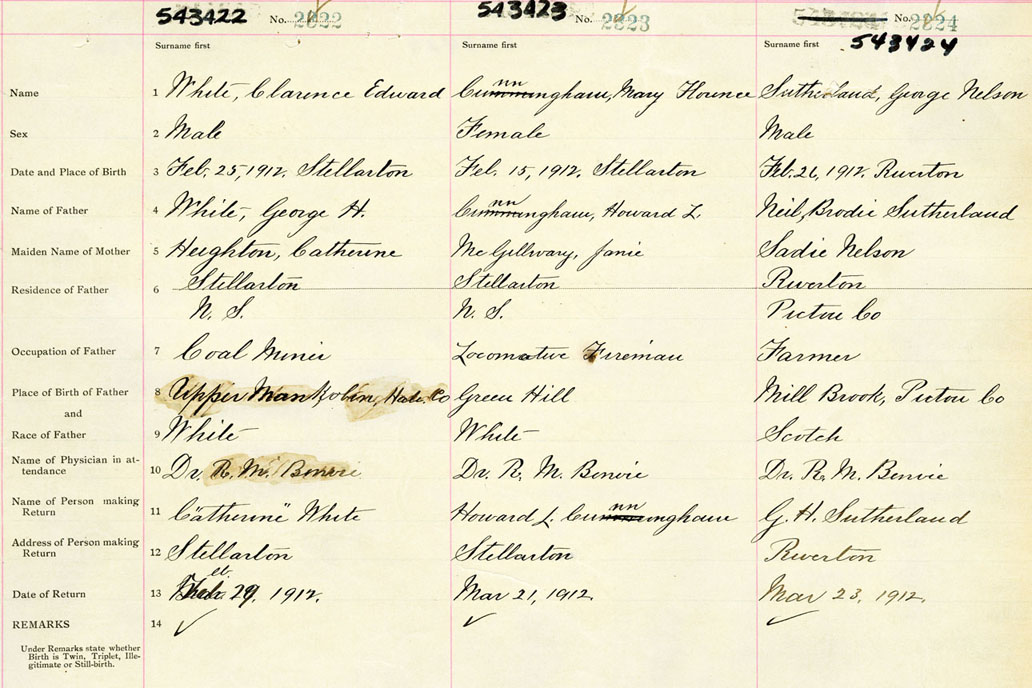 543422 No. 2822 543423 No. 2823 No. 2824
543424
Surname first Surname first Surname first
Name 1 White, Clarence Edward Cunningham, Mary Florence Sutherland, George Nelson
Sex 2 Male Female Male
Date and Place of Birth 3 Feb. 25, 1912. Stellarton Feb. 15, 1912. Stellarton Feb. 21, 1912. Riverton
Name of Father 4 White, George H. Cunningham, Howard L Neil, Brodie Sutherland
Maiden Name of Mother 5 Heighton, Catherine Mc Gillivary, Janie Sadie Nelson
Stellarton Stellarton Riverton
Residence of Father 6
N. S. N. S. Pictou Co
Occupation of Father 7 Coal Miner Locomotive Fireman Farmer
Place of Birth of Father 8 Upper Co Green Hill Mill Brook, Pictou Co
and
Race of Father 9 White White Scotch
Name of Physician in at-
tendance 10 Dr. R. M. Benvie Dr. R. M. Benvie Dr. R. M. Benvie
Name of Person making
Return 11 "Catherine" White Howard L. Cunningham G. H. Sutherland
Address of Person making
Return 12 Stellarton Stellarton Riverton
Date of Return 13 Feb 29, 1912. Mar 21, 1912. Mar 23, 1912.
REMARKS 14 ✓ ✓ ✓
Under Remarks state whether
Birth is Twin, Triplet, Ille-
gitimate or Still-birth.